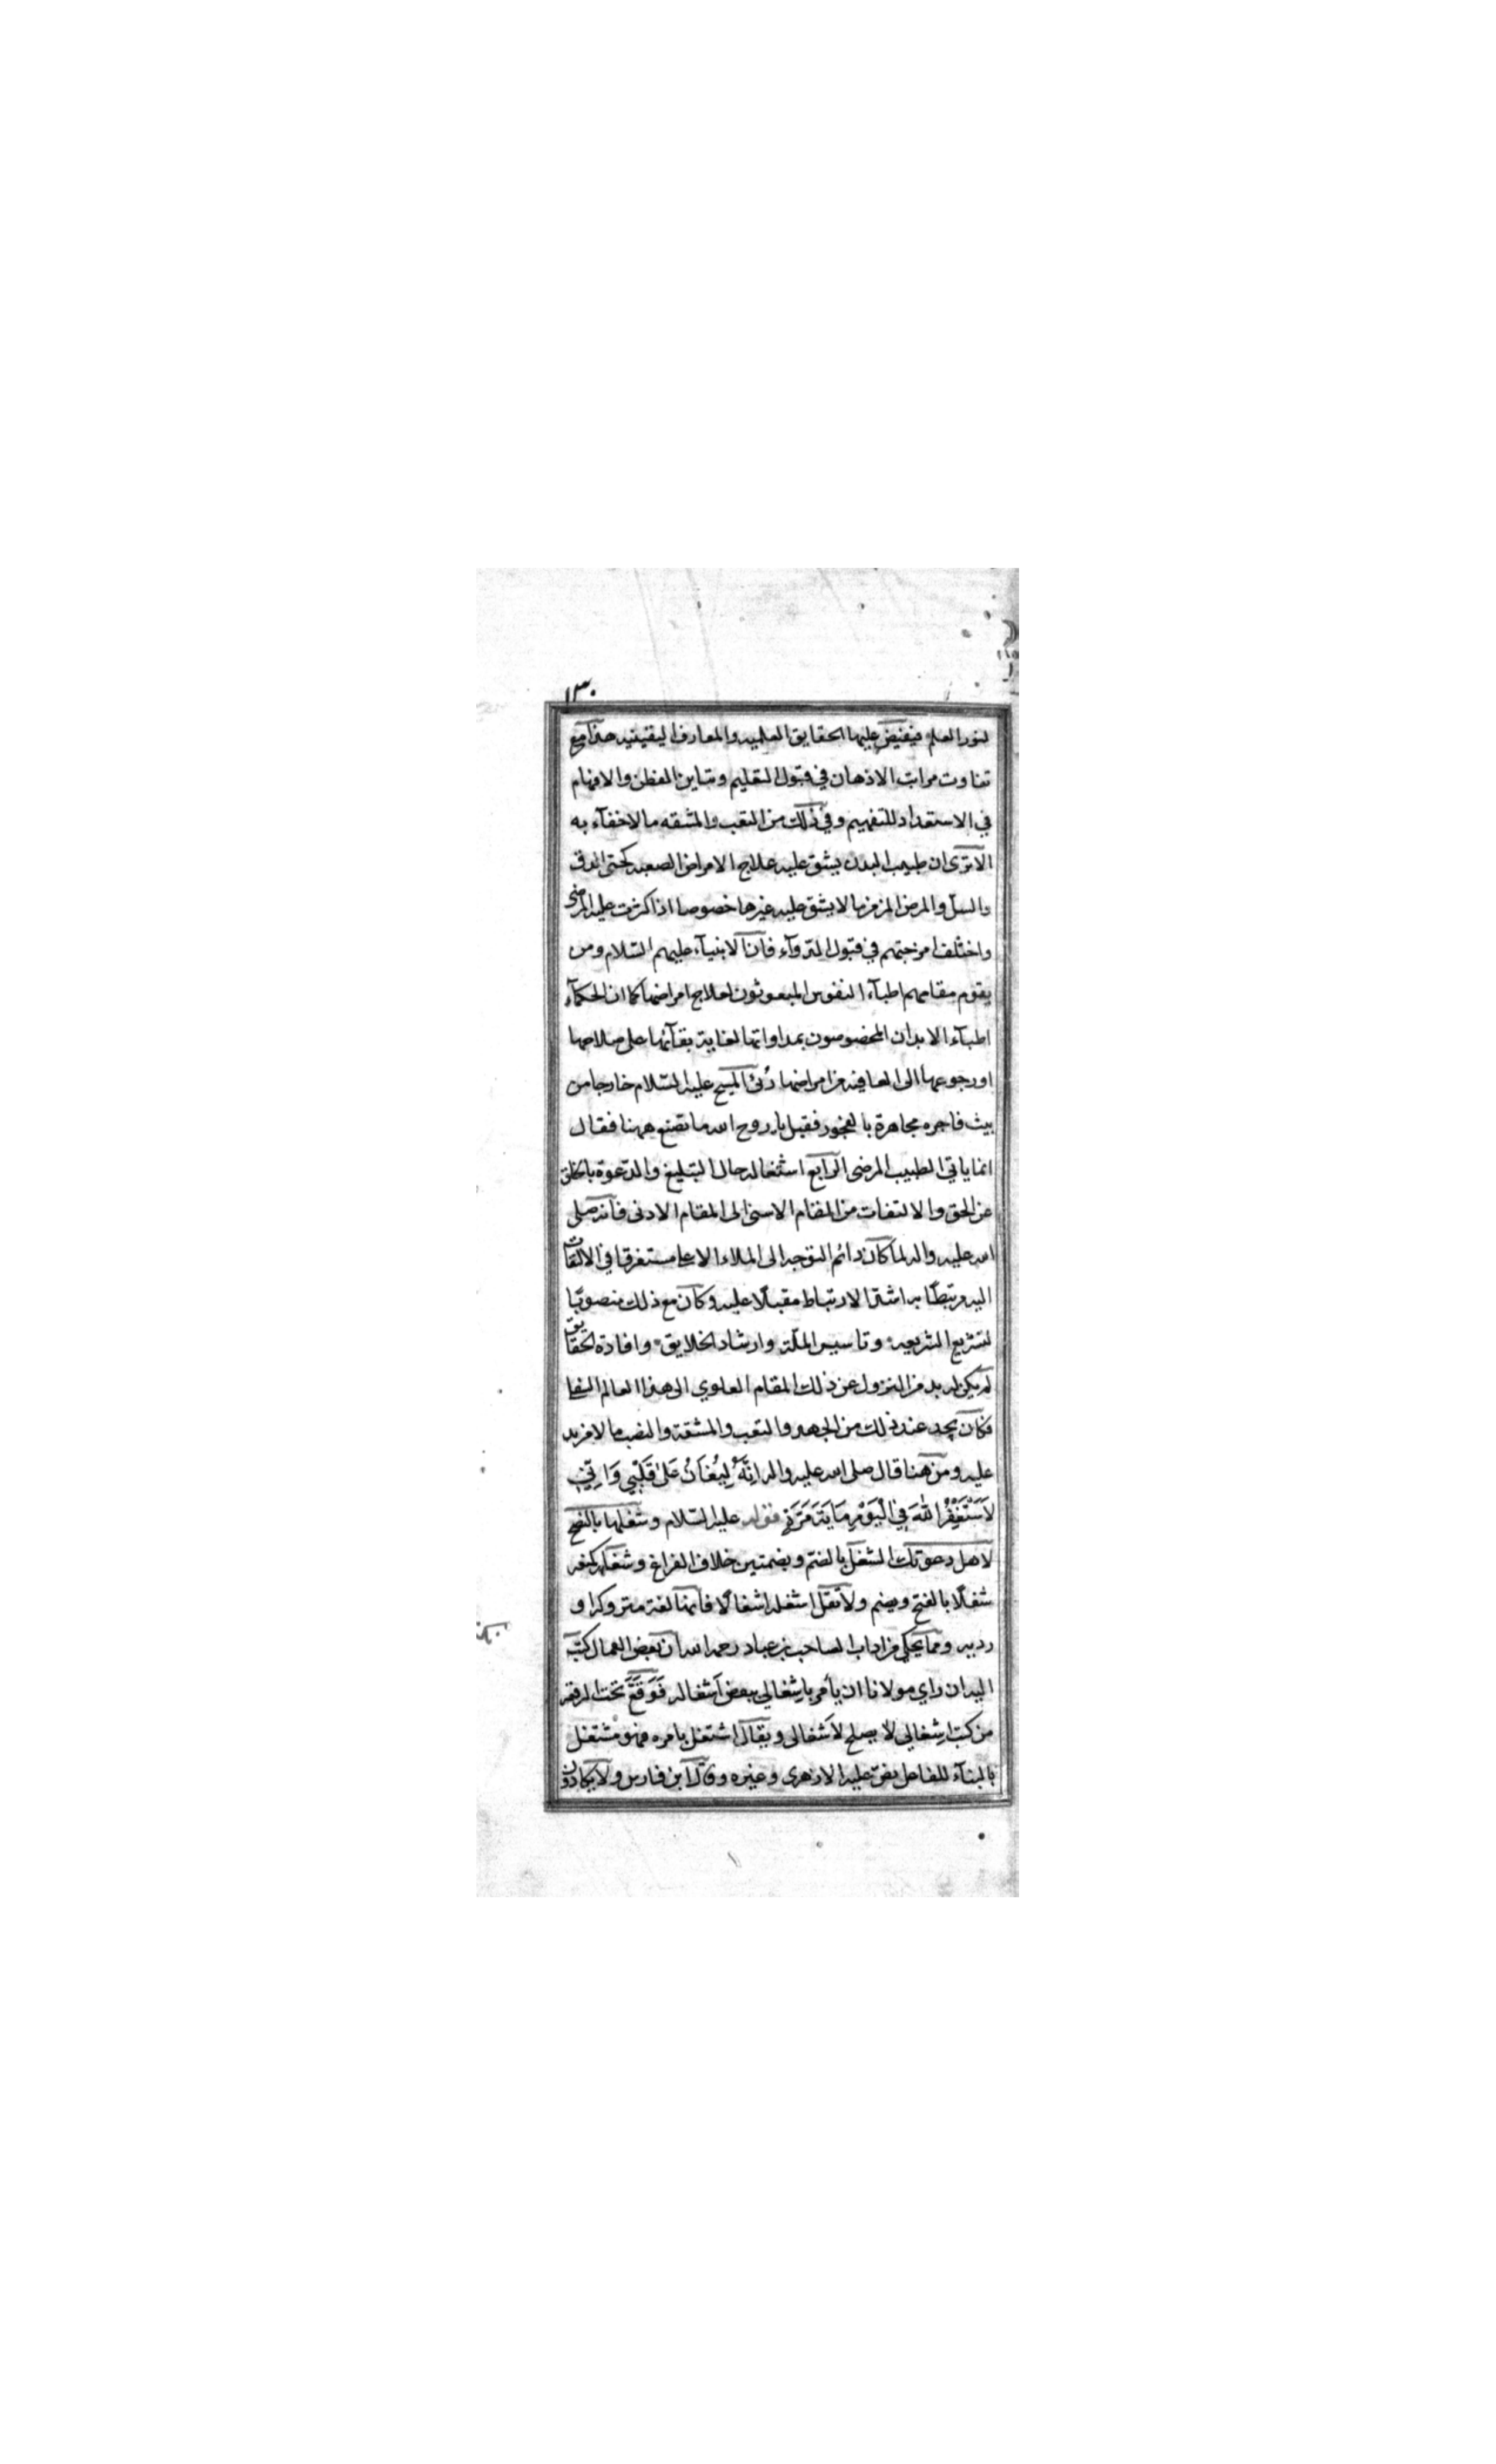 ١٣٠
لنور العلم فيفيض عليها الحقايق العلميه والمعارف اليقينيه هذا مع
تفاوت مراتب الاذهان في قبول التعليم وتباين الفطن والافهام
في الاستعداد للتفهيم وفي ذلك من التعب والمشقه مالاخفآء به
الا ترى ان طبيب البدن يشق عليه علاج الامراض الصعبه كحتى الدق
والسل والمرض المزمن ما لا يشق عليه غيرها خصوصا اذا كثرت عليه المرضى
واختلف امزجتهم في قبول الدوآء فان الانبيآء عليهم السلام ومن
يقوم مقامهم اطبآء النفوس المبعوثون لعلاج امراضها كما ان الحكمآء
اطبآء الابدان المخصوصون بمداواتها لغاية بقآئها على صلاحها
او رجوعها الى العافيه من امراضها رُئى المسيح عليه السلام خارجا من
بيت فاجره مجاهرة بالفجور فقيل يا روح الله ما تصنع ههنا فقال
انما ياتي الطبيب المرضى الرابع اشتغاله حال التبليغ والدعوة بالخلق
عن الحق والالتفات من المقام الاسنى الى المقام الادنى فانه صلى
الله عليه واله لما كان دائم التوجه الى الملاء الاعلى مستغرقا في الالتفات
اليه مرتبطًا به اشد الارتباط مقبلًا عليه وكان مع ذلك منصوبًا
لتشريع الشريعه وتاسيس الملّة وارشاد الخلايق وافادة الحقايق
لم يكن له بد من النزول عن ذلك المقام العلوي الى هذا العالم السفلي
فكان يجد عند ذلك من الجهد والتعب والمشقة والنصب ما لا مزيد
عليه ومن هنا قال صلى الله عليه واله اِنَّهُ لَيُغَانُ عَلىٰ قَلْبِي وَاِنِّي
لَاَسْتَغْفِرُ اللّٰهَ فِي الْيَوْمِ مِايَةَ مَرَّةٍ قوله عليه السلام وشغلها بالنصح
لاهل دعوتك الشغل بالضم وبضمتين خلاف الفراغ وشغله كمنعه
شغلًا بالفتح ويضم ولا تقل اشغله اشغالًا فانها لغة متروكة او
رديه ومما يحكى من اداب الصاحب بن عباد رحمه الله ان بعض العمال كتب
اليه ان راي مولانا ان يأمر باِشغالي ببعض اَشغاله فَوَقَّعَ تحت الرقعه
من كتب اِشغالي لا يصلح لاَشغالى ويقال اشتغل بامره فهو مشتغل
بالبنآء للفاعل نص عليه الازهرى وغيره وقال ابن فارس ولا يكادون